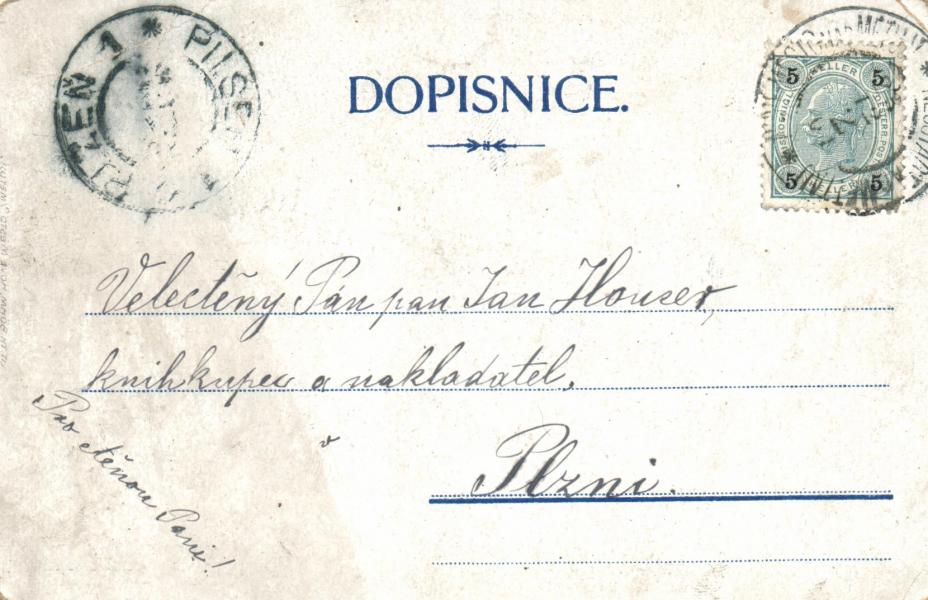 PLZEŇ 1 * PILSEN 1
DOPISNICE.
5 HELLER 5
5 5
Velectěný Pán pan Jan Houser,
knihkupec a nakladatel.
v
Plzni.
Pro ctěnou Paní!